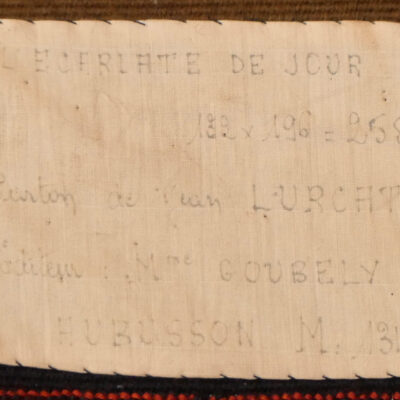 L'ECARLATE DE JOUR
132 x 196 = 258
Carton de Jean LURCAT
Editeur : Mme GOUBELY
AUBUSSON M. 131